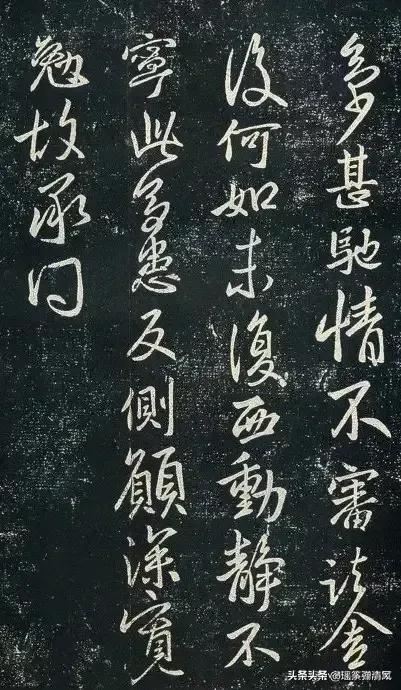 多甚馳情不審舍
後何如未復西動靜不
寧此多患反側願深寬
勉故承問
头条 @瑶筷弹清风